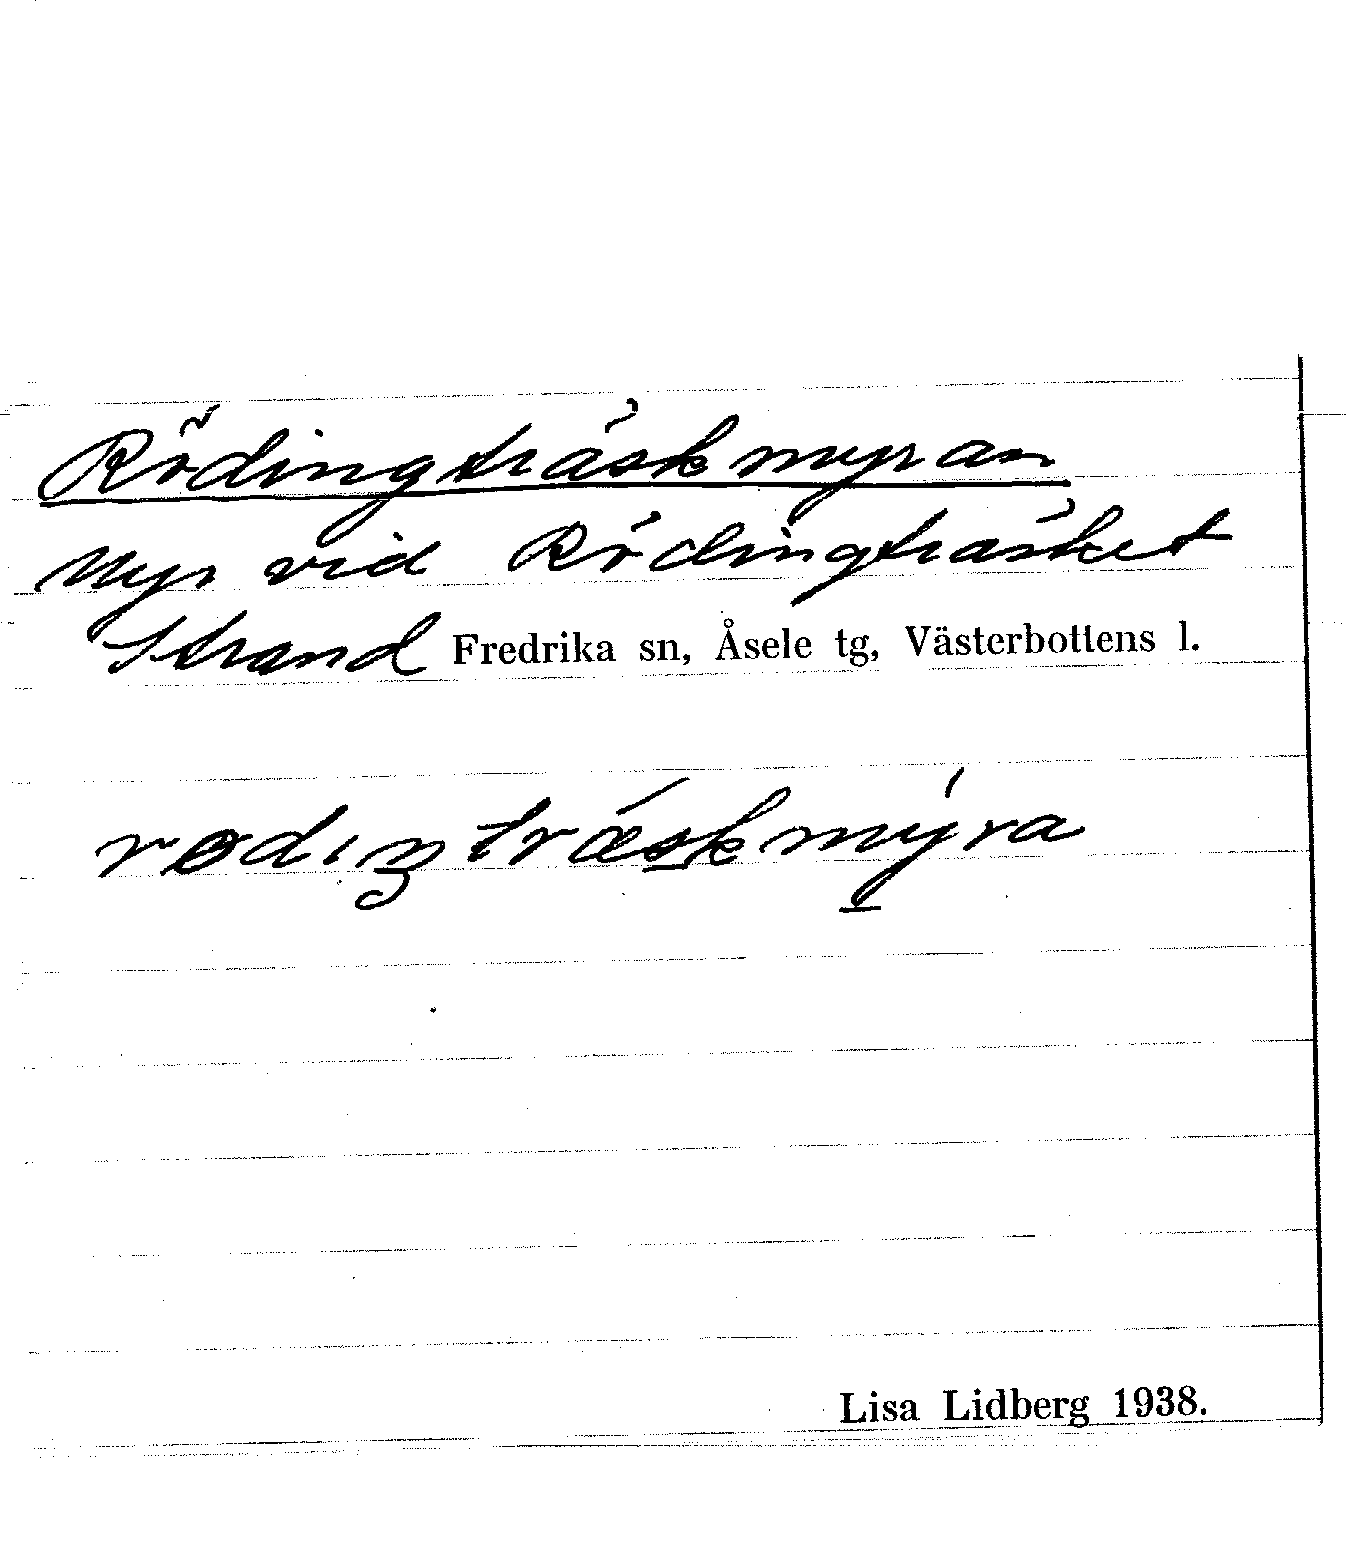 Rödingträskmyran
Myr vid Rödingträsket
Strand Fredrika sn, Åsele tg, Västerbottens l.
rødıŋtrǽskmýra
Lisa Lidberg 1938.